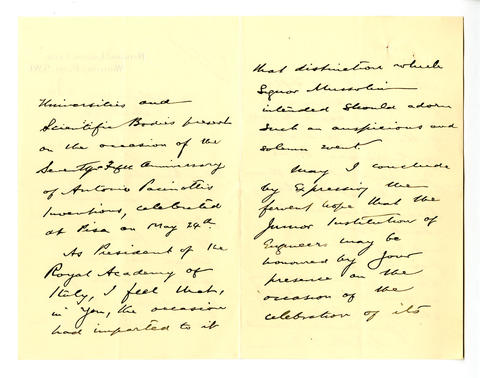 Universities and
Scientific Bodies present
on the occasion of the
Seventy-Fifth Anniversary
of Antonio Pacinotti's
Inventions, celebrated
at Pisa on May 24th.
As President of the
Royal Academy of
Italy, I feel that,
in You, the occasion
had imparted to it
that distinction which
Signor Mussolini
intended should adorn
such an auspicious and
solemn event
May I conclude
by expressing the
fervent hope that the
Junior Institution of
Engineers may be
honoured by your
presence on the
occasion of the
celebration of its